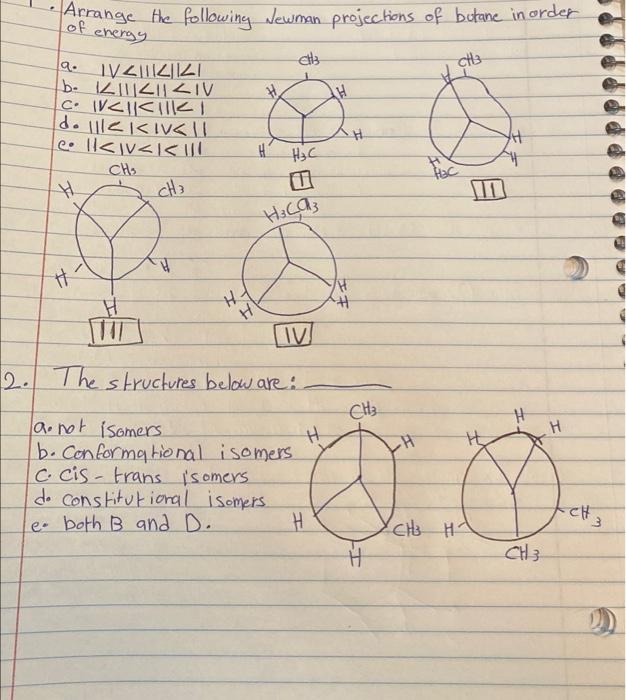 1. Arrange the following Newman projections of butane in order
of energy
a. IV<III<II<I
b. I<III<II<IV
c. IV<II<III<I
d. III<I<IV<II
e. II<IV<I<III
CH3
H
H
H
H
H3C
I
CH3
H
H
H
H
H3C
II
CH3
H
CH3
H
H
H
III
H3C CH3
H
H
H
H
IV
2. The structures below are: ________
a. not isomers
b. Conformational isomers
c. cis-trans isomers
d. constitutional isomers
e. both B and D.
CH3
H
H
H
CH3
H
H
H
H
H
CH3
CH3